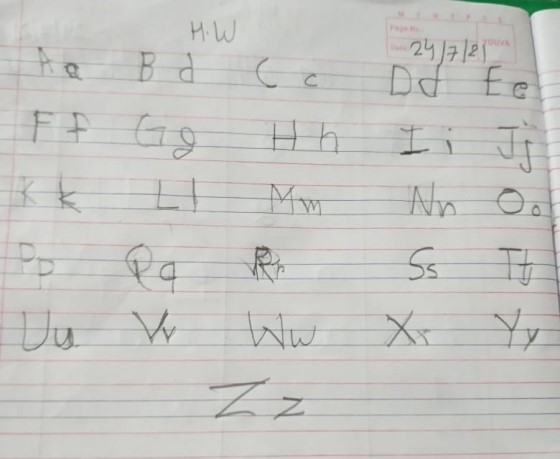 H.W
M T W T F S S
Page No.:
Date: 24/7/21 YOUVA
Aa B d C c Dd Ee
F f Gg H h I i Jj
K k Ll Mm Nn Oo
Pp Qq Rr Ss Tt
Uu Vv Ww Xx Yy
Zz